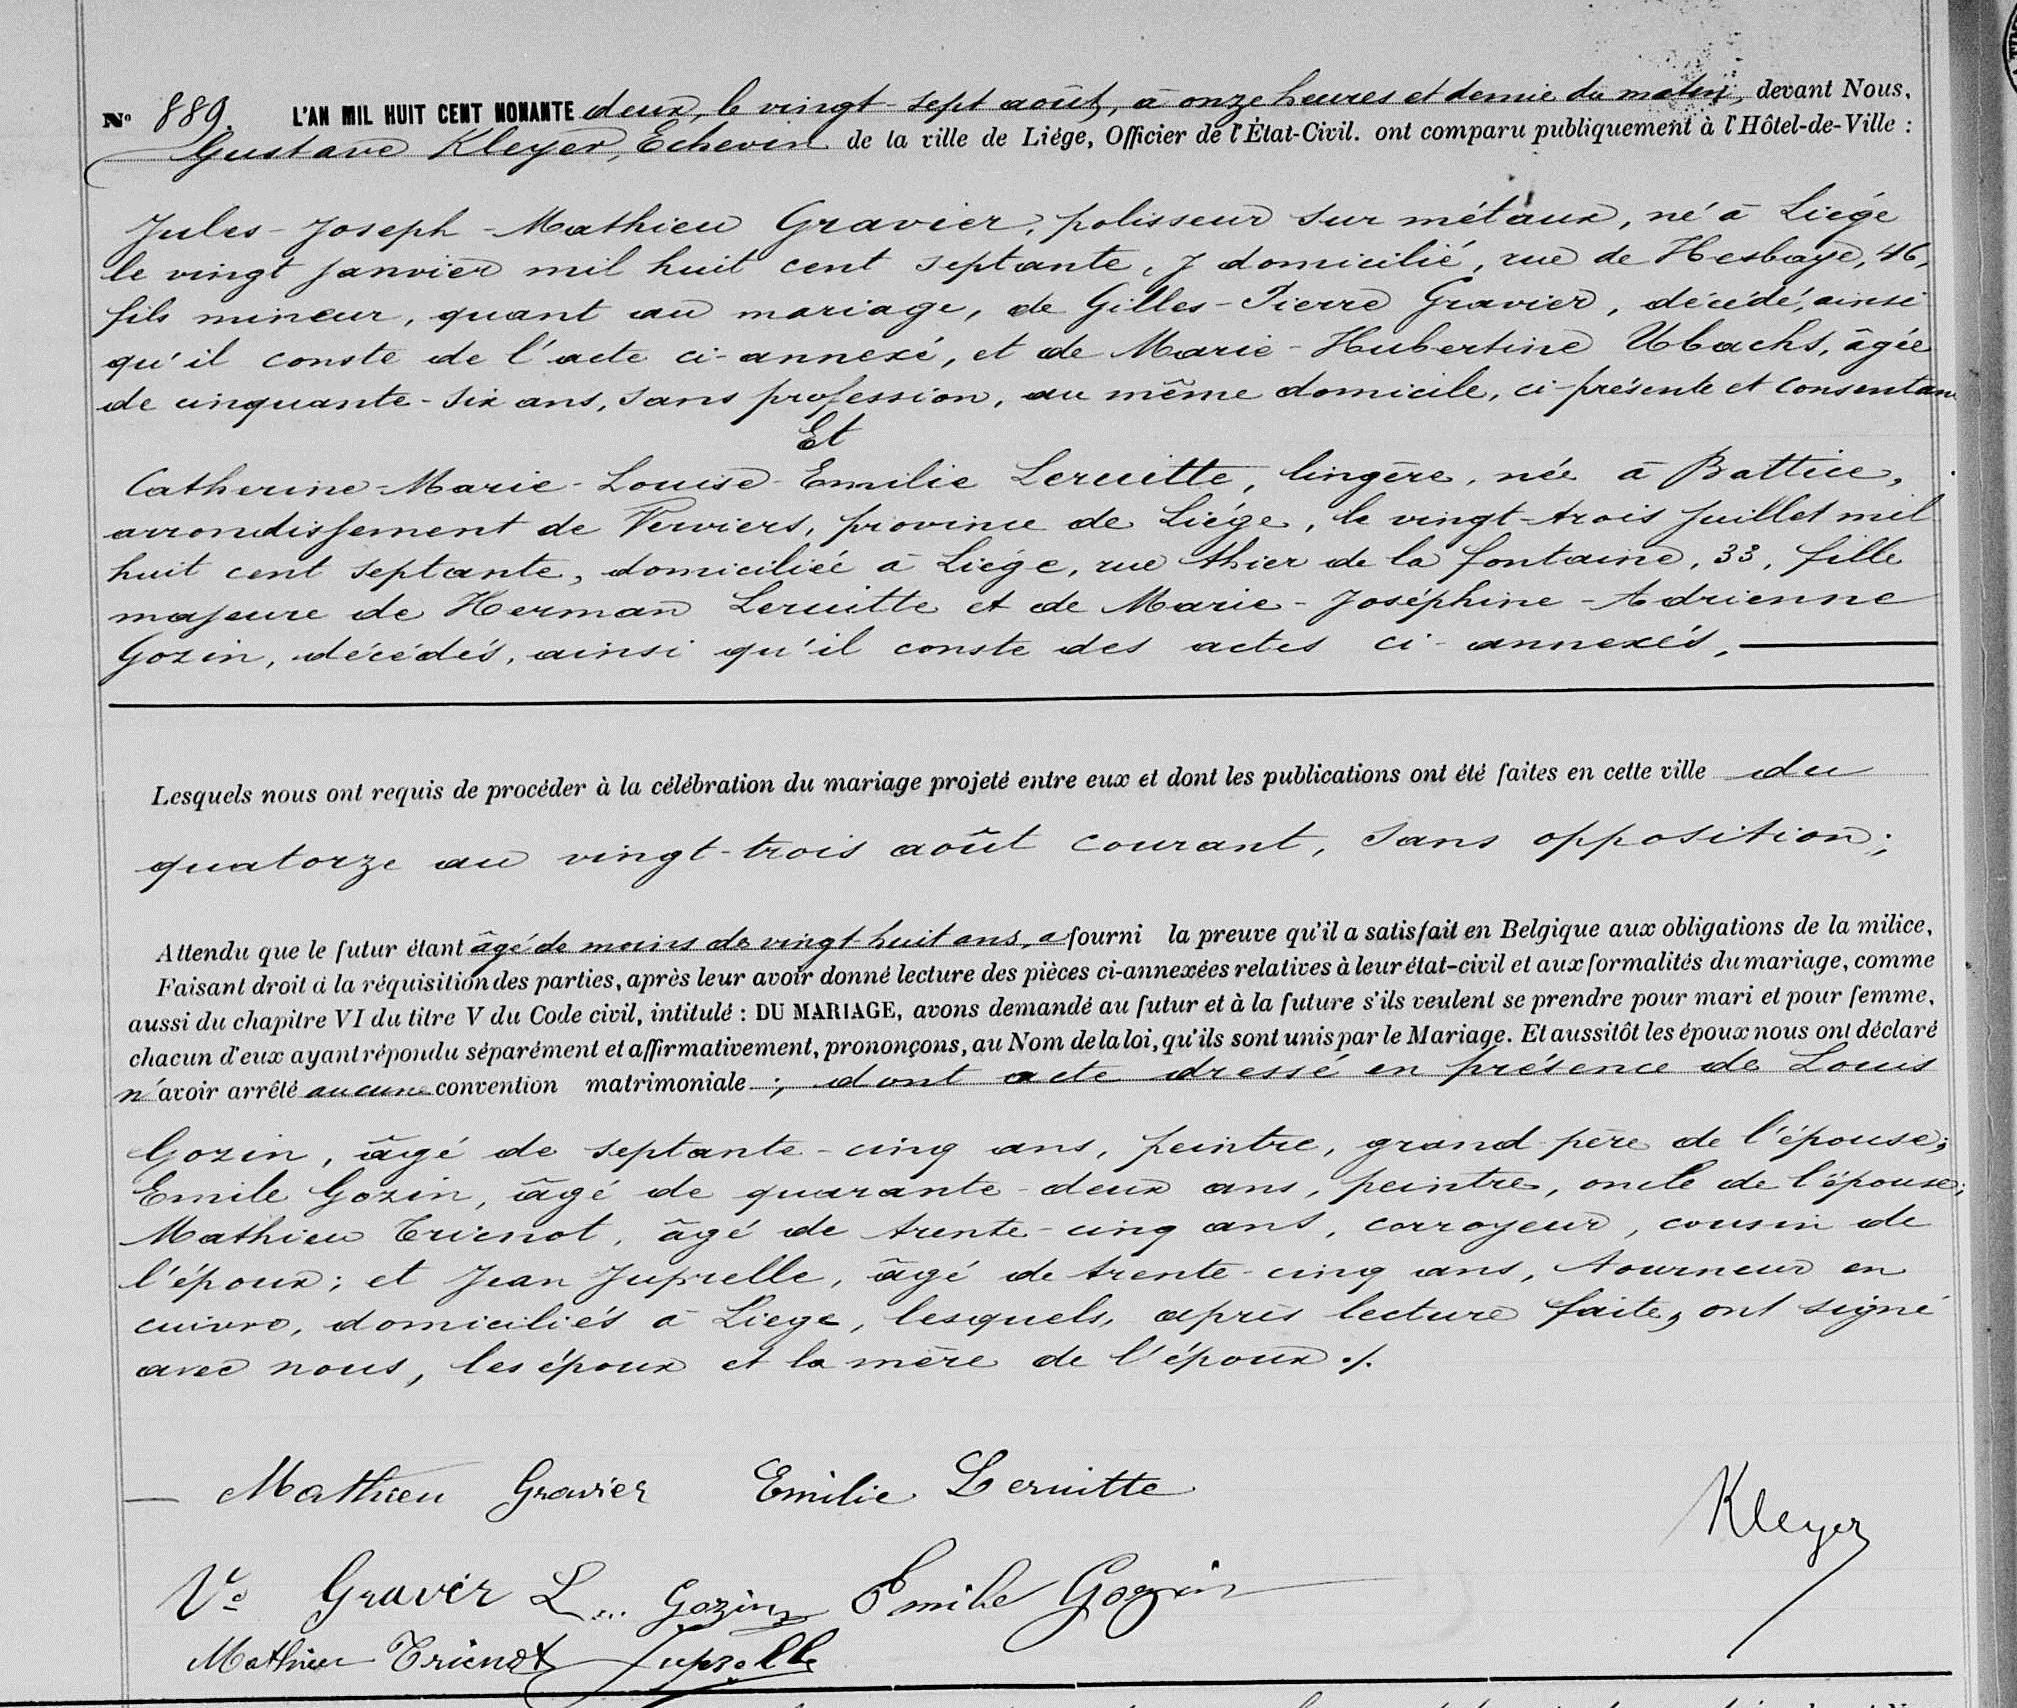 N° 889. L'AN MIL HUIT CENT NONANTE deux, le vingt-sept août, à onze heures et demie du matin, devant Nous,
Gustave Kleyer, Echevin de la ville de Liége, Officier de l'État-Civil. ont comparu publiquement à l'Hôtel-de-Ville :
Jules-Joseph-Mathieu Gravier, polisseur sur métaux, né à Liége
le vingt Janvier mil huit cent septante, y domicilié, rue de Hesbaye, 46,
fils mineur, quant au mariage, de Gilles-Pierre Gravier, décédé, ainsi
qu'il conste de l'acte ci-annexé, et de Marie-Hubertine Ubachs, âgée
de cinquante-six ans, sans profession, au même domicile, ci-présente et consentan
Et
Catherine-Marie-Louise-Emilie Leruitte, lingère, née à Battice,
arrondissement de Verviers, province de Liége, le vingt-trois Juillet mil
huit cent septante, domiciliée à Liége, rue thier de la fontaine, 33, fille
majeure de Herman Leruitte et de Marie-Joséphine-Adrienne
Gozin, décédés, ainsi qu'il conste des actes ci-annexés.
Lesquels nous ont requis de procéder à la célébration du mariage projeté entre eux et dont les publications ont été faites en cette ville du
quatorze au vingt-trois août courant, sans opposition;
Attendu que le futur étant âgé de moins de vingt-huit ans, a fourni la preuve qu'il a satisfait en Belgique aux obligations de la milice,
Faisant droit à la réquisition des parties, après leur avoir donné lecture des pièces ci-annexées relatives à leur état-civil et aux formalités du mariage, comme
aussi du chapitre VI du titre V du Code civil, intitulé : DU MARIAGE, avons demandé au futur et à la future s'ils veulent se prendre pour mari et pour femme,
chacun d'eux ayant répondu séparément et affirmativement, prononçons, au Nom de la loi, qu'ils sont unis par le Mariage. Et aussitôt les époux nous ont déclaré
n'avoir arrêté aucune convention matrimoniale ; dont acte dressé en présence de Louis
Gozin, âgé de septante-cinq ans, peintre, grand-père de l'épouse;
Emile Gozin, âgé de quarante-deux ans, peintre, oncle de l'épouse;
Mathieu Trienot, âgé de trente-cinq ans, corroyeur, cousin de
l'époux; et Jean Juprelle, âgé de trente-cinq ans, tourneur en
cuivre, domiciliés à Liege, lesquels, après lecture faite, ont signé
avec nous, les époux et la mère de l'époux ./.
Mathieu Gravier Emilie Leruitte
Kleyer
Ve Gravier L... Gozin Emile Gozin
Mathieu Trienot Juprelle